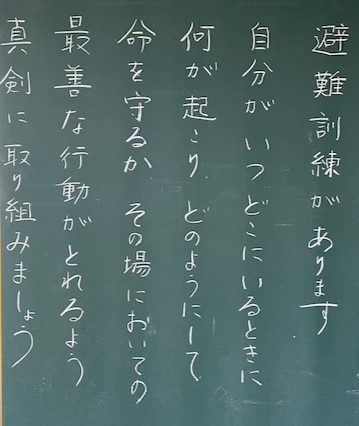 避難訓練があります
自分がいつどこにいるときに
何が起こり、どのようにして
命を守るか その場においての
最善な行動がとれるよう
真剣に取り組みましょう